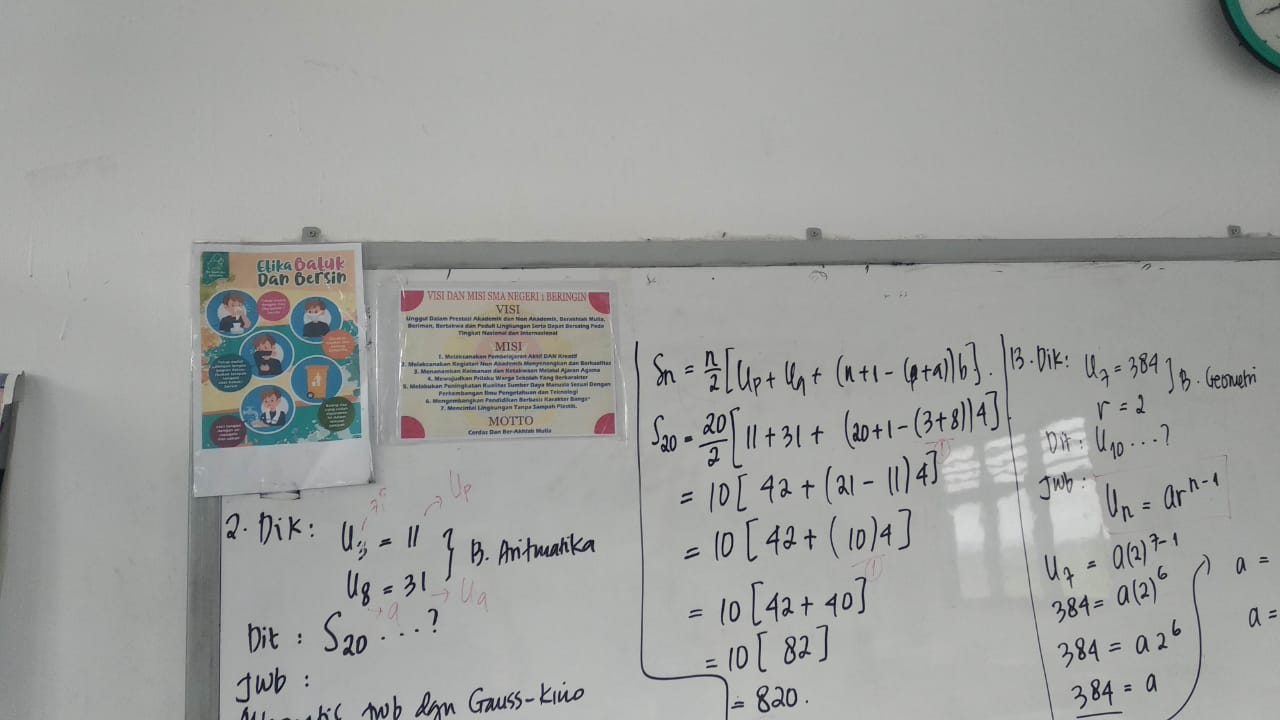 Etika Batuk
Dan Bersin
VISI DAN MISI SMA NEGERI 1 BERINGIN
VISI
Unggul Dalam Prestasi Akademik dan Non Akademik, Berakhlak Mulia,
Beriman, Bertakwa dan Peduli Lingkungan Serta Dapat Bersaing Pada
Tingkat Nasional dan Internasional
MISI
1. Melaksanakan Pembelajaran Aktif DAN Kreatif
2. Melaksanakan Kegiatan Non Akademis Menyenangkan dan Berkualitas
3. Menanamkan Keimanan dan Ketakwaan Melalui Ajaran Agama
4. Mewujudkan Prilaku Warga Sekolah Yang Berkarakter
5. Melakukan Peningkatan Kualitas Sumber Daya Manusia Sesuai Dengan
Perkembangan Ilmu Pengetahuan dan Teknologi
6. Mengembangkan Pendidikan Berbasis Karakter Bangsa
7. Mencintai Lingkungan Tanpa Sampah Plastik.
MOTTO
Cerdas Dan Ber-Akhlak Mulia
2. Dik: U3 = 11
Up
U8 = 31
} B. Aritmatika
a
Uq
Dit : S20 ...?
Jwb :
jwb dgn Gauss-Kino
Sn = n/2 [Up + Uq + (n+1-(p+q))b].
S20 = 20/2 [11+31+ (20+1-(3+8))4]
= 10 [42 + (21 - 11)4]
= 10 [42 + (10)4]
= 10 [42 + 40]
= 10 [82]
= 820.
13. Dik: U7 = 384
r = 2
] B. Geometri
Dit: U10 ...?
Jwb:
Un = ar^n-1
U7 = a(2)^7-1
384 = a(2)^6
384 = a 2^6
384 = a
a =
a =